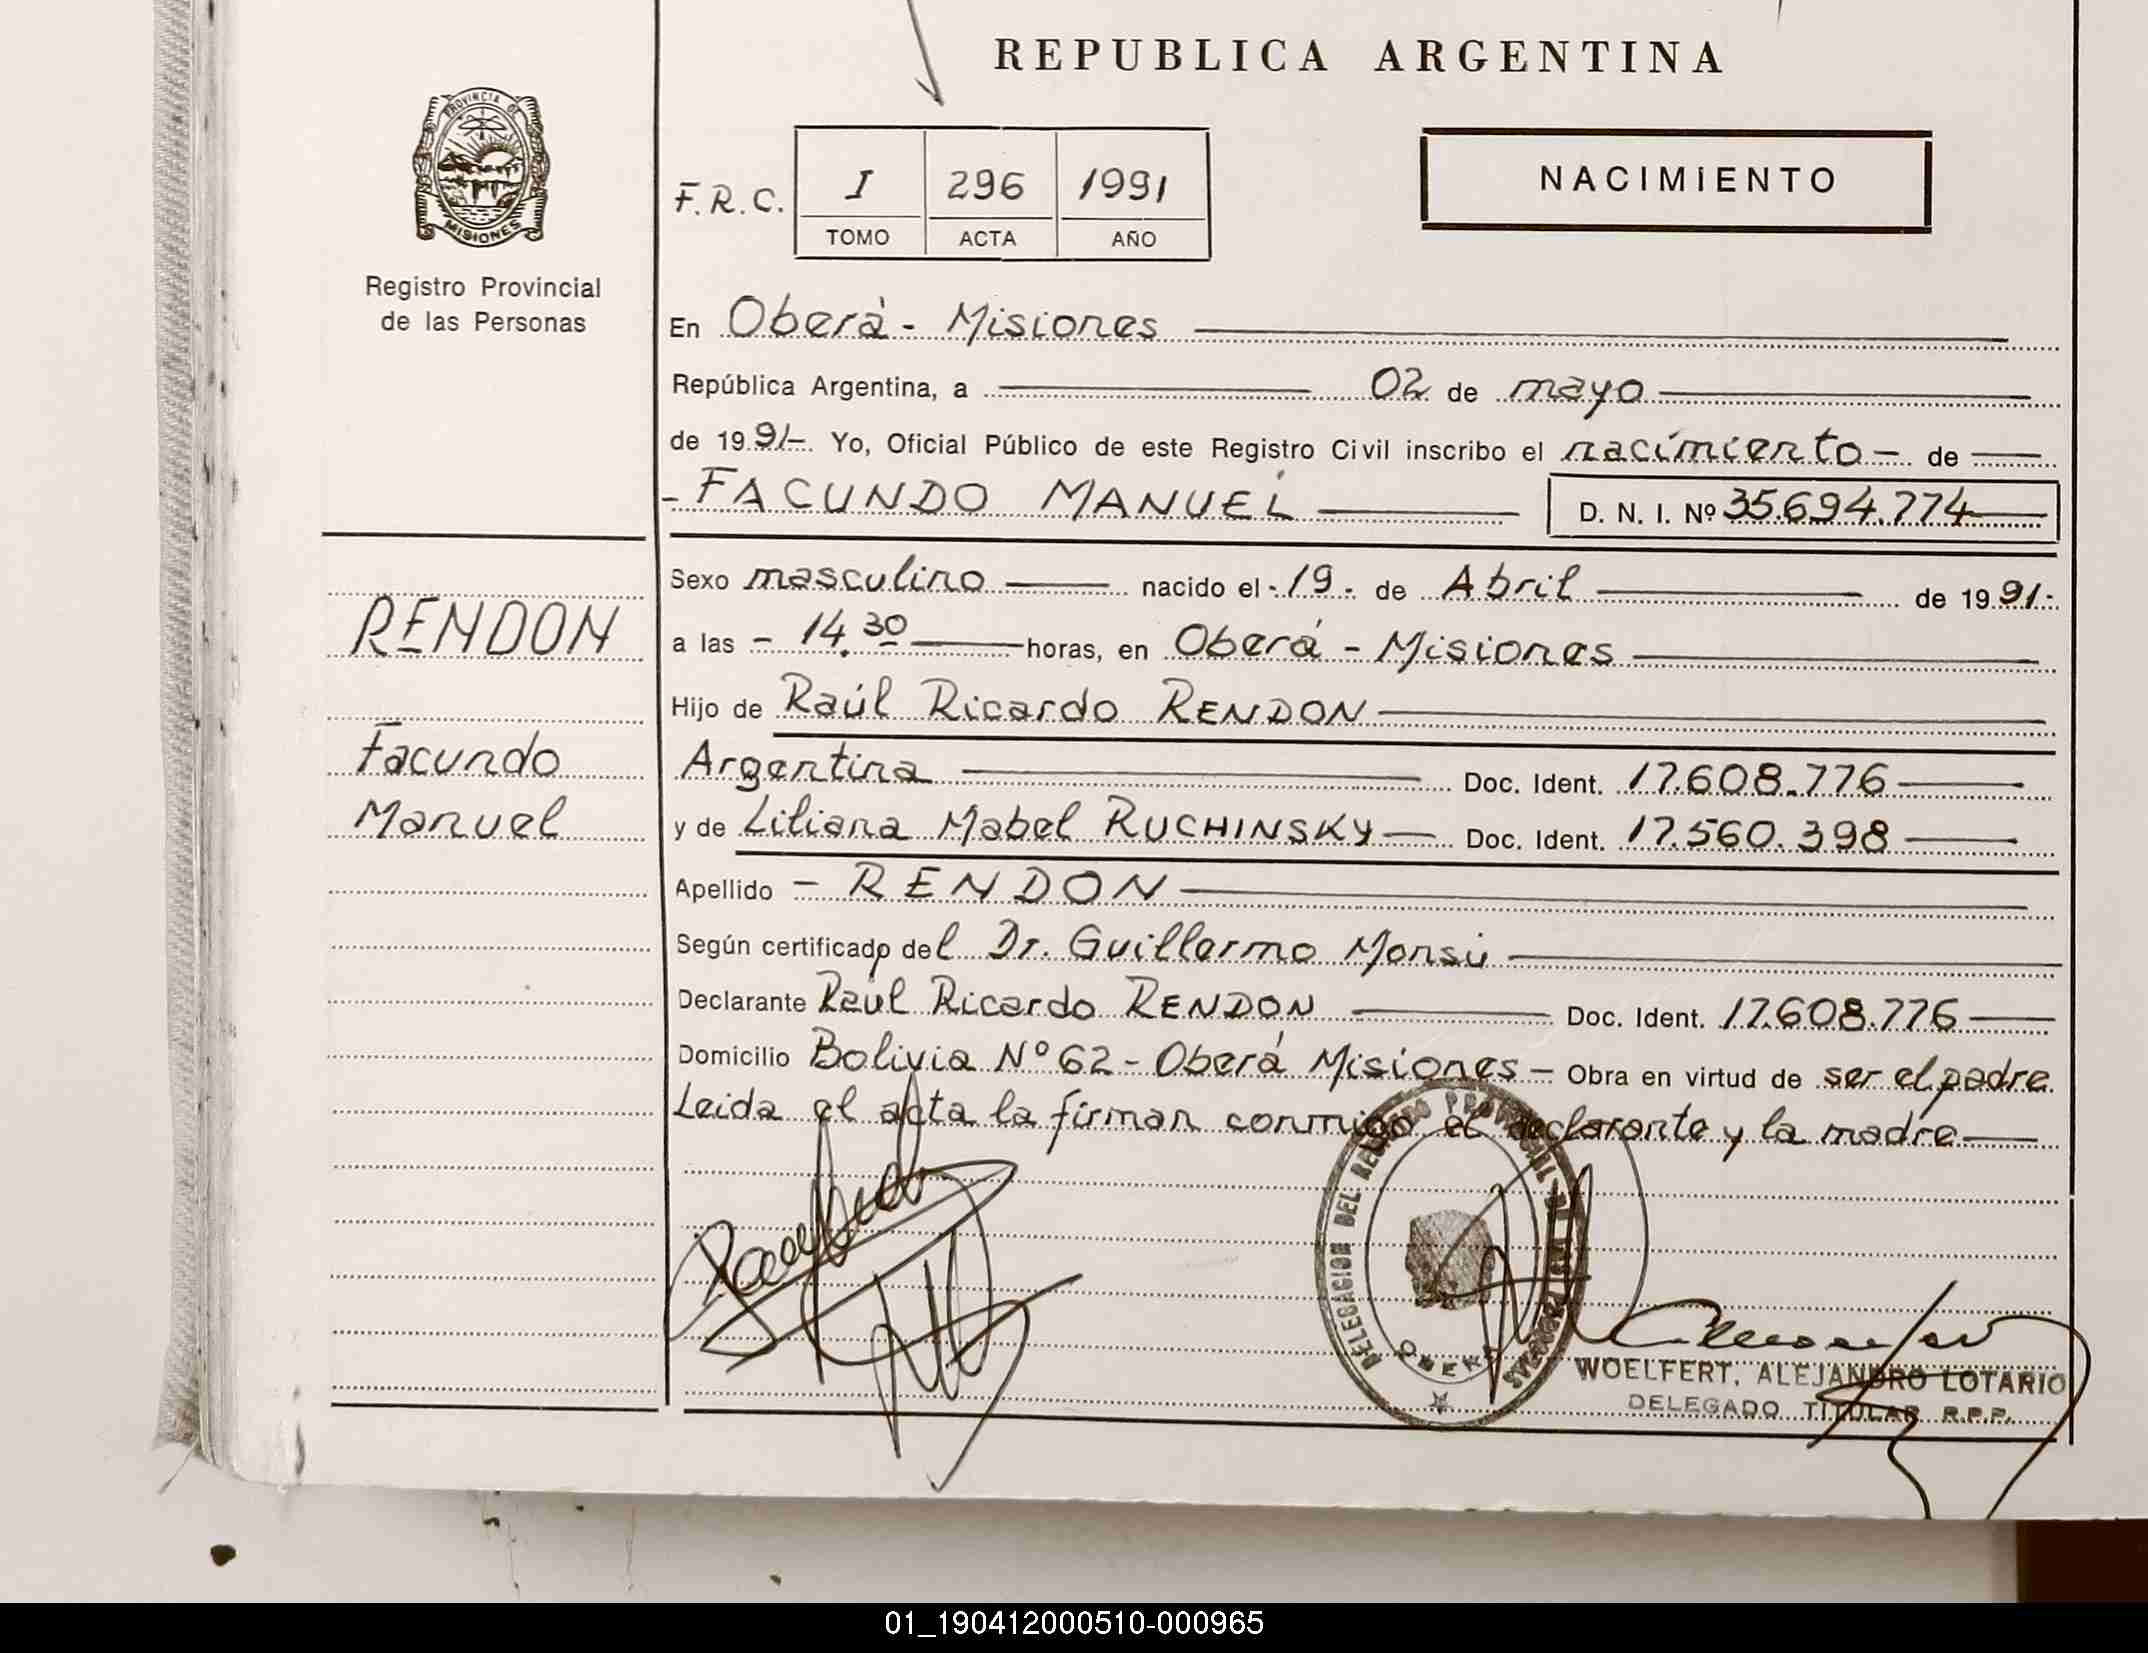 REPUBLICA ARGENTINA
PROVINCIA DE
MISIONES
Registro Provincial
de las Personas
F.R.C.
I 296 1991
TOMO ACTA AÑO
NACIMIENTO
En Oberá - Misiones
República Argentina, a 02 de mayo
de 1991-. Yo, Oficial Público de este Registro Civil inscribo el nacimiento - de
- FACUNDO MANUEL D. N. I. Nº 35.694.774
RENDON
Facundo
Manuel
Sexo masculino nacido el - 19 - de Abril de 1991-
a las - 14.30 horas, en Oberá - Misiones
Hijo de Raúl Ricardo RENDON
Argentina Doc. Ident. 17.608.776
y de Liliana Mabel RUCHINSKY Doc. Ident. 17.560.398
Apellido - RENDON
Según certificado del Dr. Guillermo Monsú
Declarante Raúl Ricardo RENDON Doc. Ident. 17.608.776
Domicilio Bolivia Nº 62 - Oberá Misiones - Obra en virtud de ser el padre.
Leida el acta la firman conmigo el declarante y la madre
DELEGACION DEL REGISTRO PROVINCIAL DE LAS PERSONAS
OBERA
WOELFERT, ALEJANDRO LOTARIO
DELEGADO TITULAR R.P.P.
01_190412000510-000965